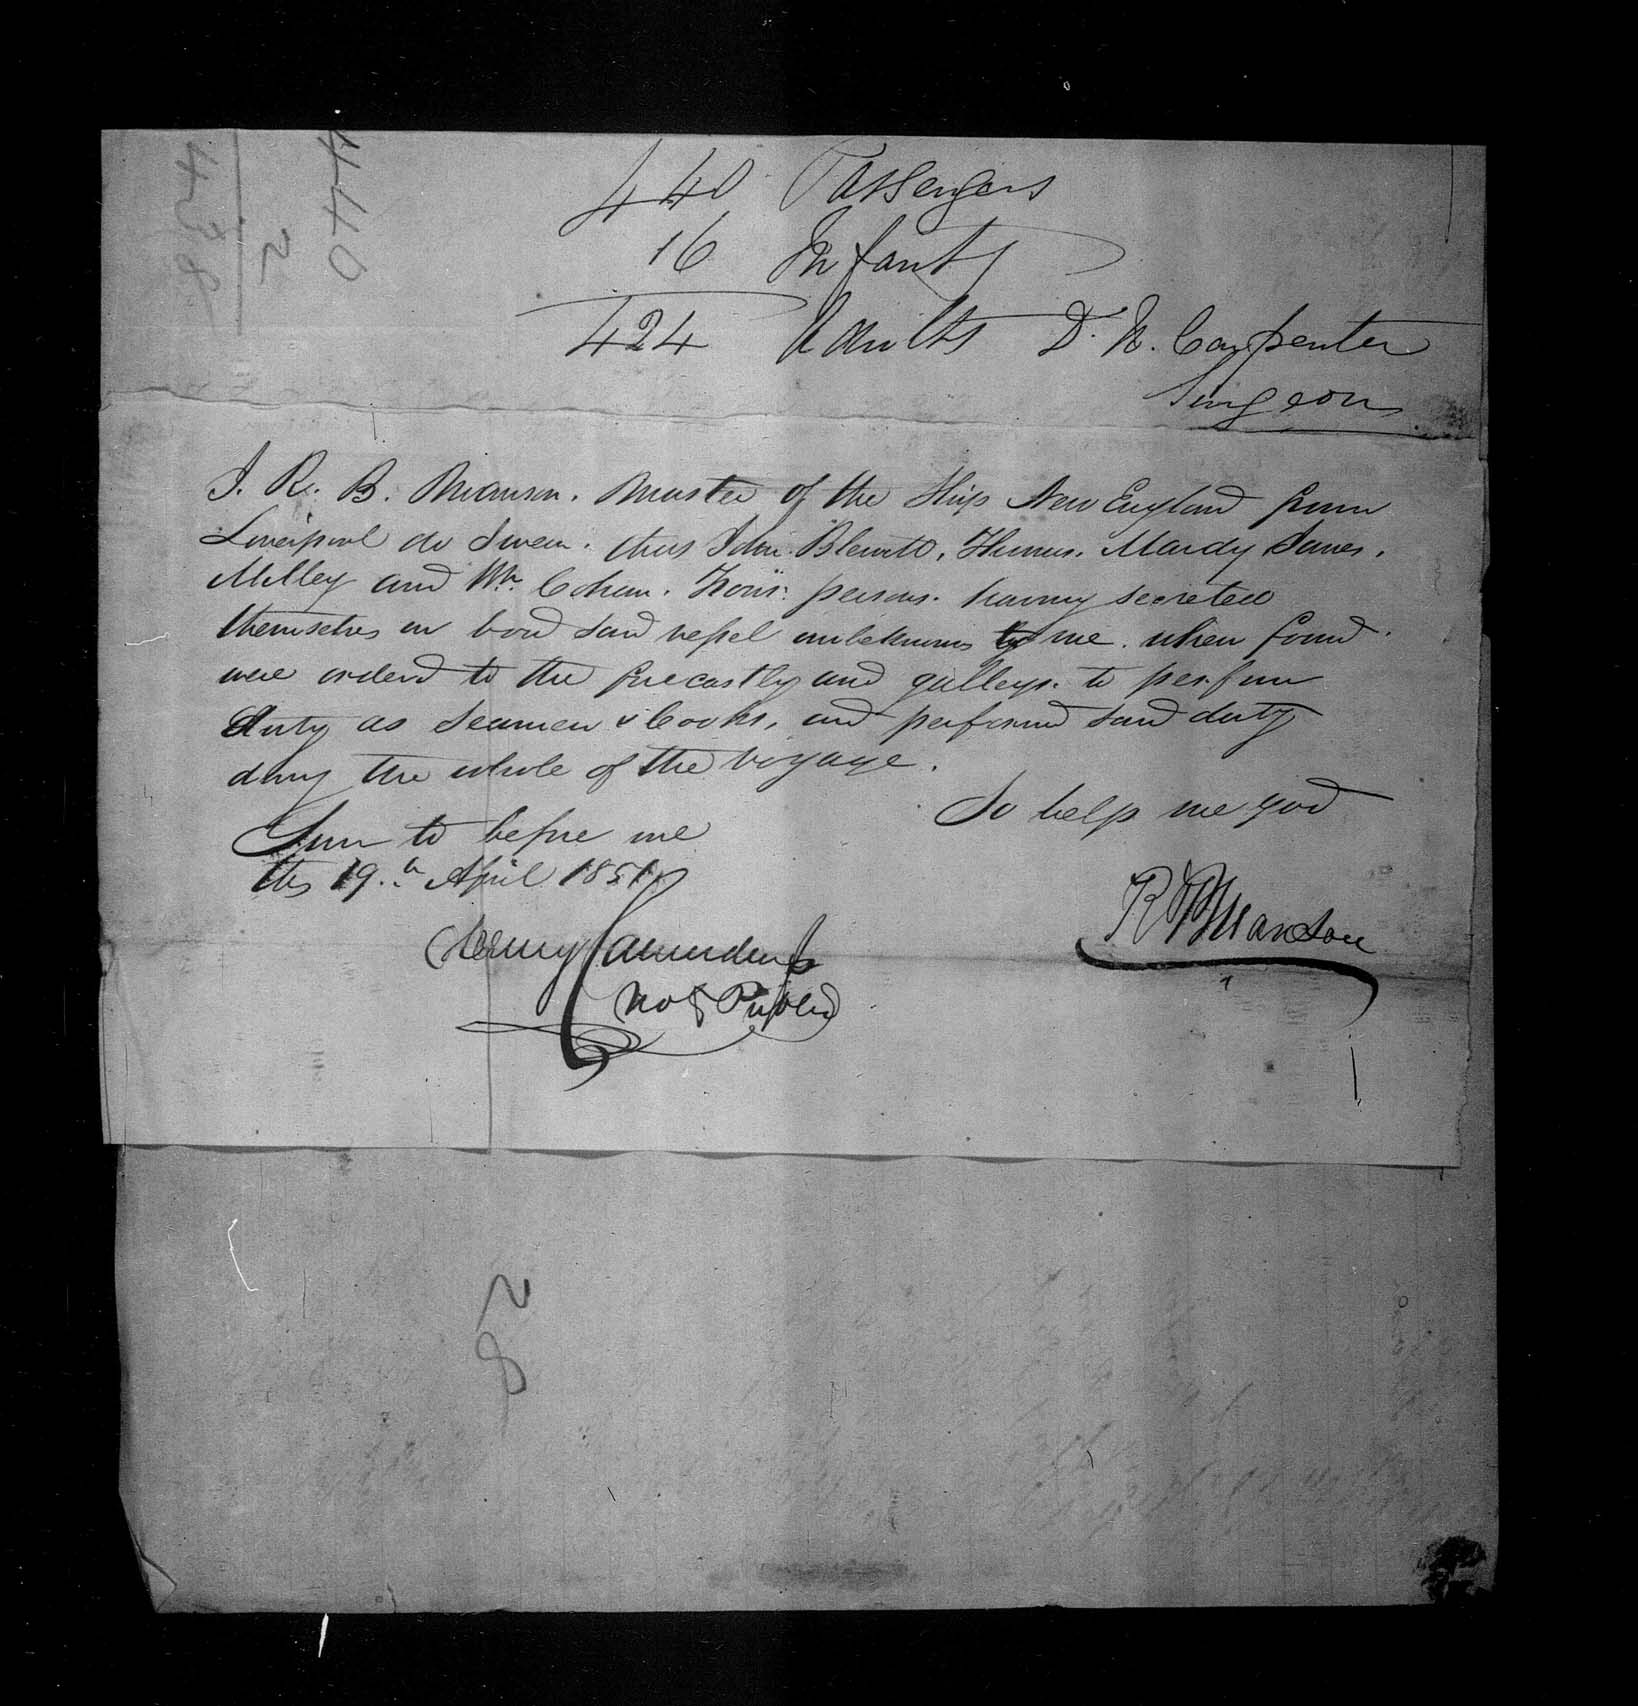 440 Passengers
16 Infants
424 Adults D. N. Carpenter
Surgeon
440
2
438
I. R. B. Manson. Master of the Ship New England from
Liverpool do Swear. that John Blewitt, Thomas. Mardy James.
Milley and Wm. Cohan. Four. persons. having secreted
themselves on bord said vessel unbeknown to me. when found.
were orderd to the forecastly and galleys. to perform
duty as Seamen & Cooks, and performd said duty
durng the whole of the voyage.
So help me God
Sworn to before me
this 19.th April 1851
R B Manson
Henry Saunders
Not Public
28